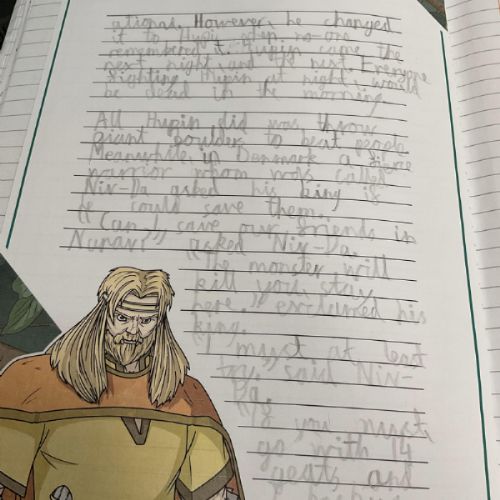 ations. However, he changed
it to Hupin when no-one
remembered it. Hupin came the
next night and the next. Everyone
fighting Hupin at night would
be dead in the morning
All Hupin did was throw
giant boulder to beat people
Meanwhile, in Denmark a fierce
warrior whom was called
Niv-Da asked his king if
he could save them.
"Can I save our friends in
asked Niv-Da.
"The monster will
kill you, stay
here." exclaimed his
king.
"I must at least
try," said Niv-
Da.
"If you must
go with 14
geats and